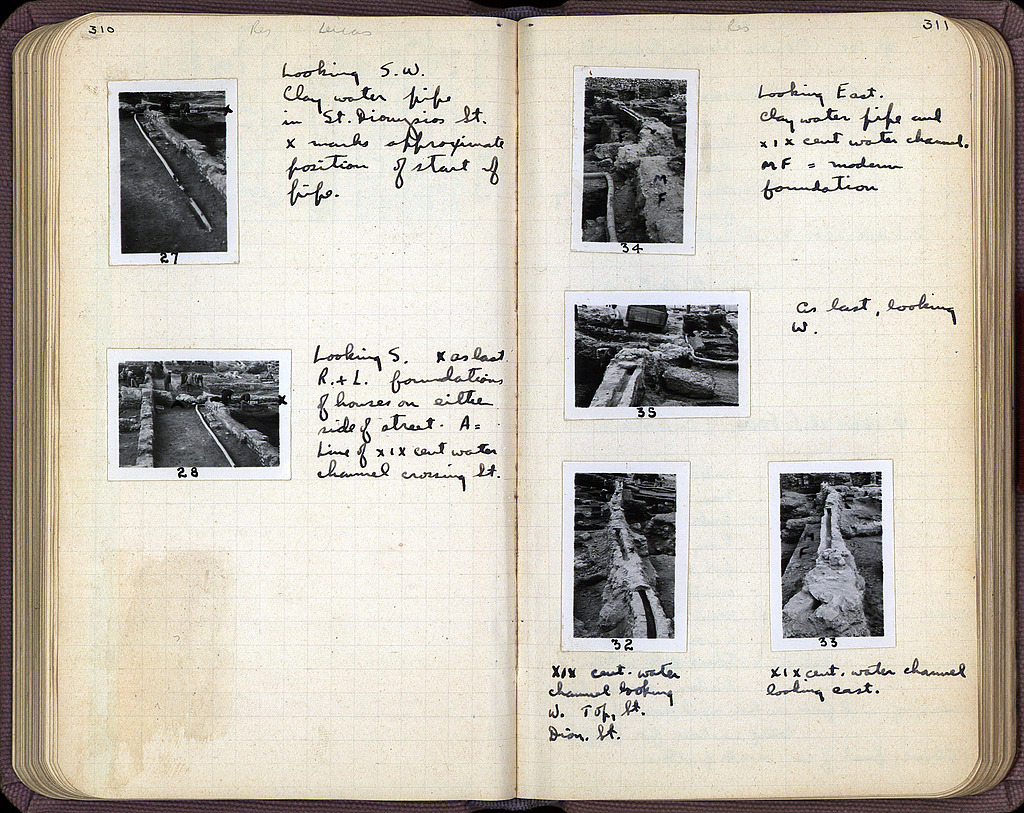 310
Res Leicas
Looking S.W.
Clay water pipe
in St. Dionysios St.
x marks approximate
position of start of
pipe.
x
27
Looking S. x as last
R. + L. foundations
of houses on either
side of street. A =
Line of XIX cent water
channel crossing St.
x
28
311
Res
Looking East.
Clay water pipe and
XIX cent water channel.
MF = modern
foundation
M
F
34
As last, looking
W.
35
32
XIX cent. water
channel looking
W. Top, St.
Dion. St.
F
33
XIX cent. water channel
looking east.